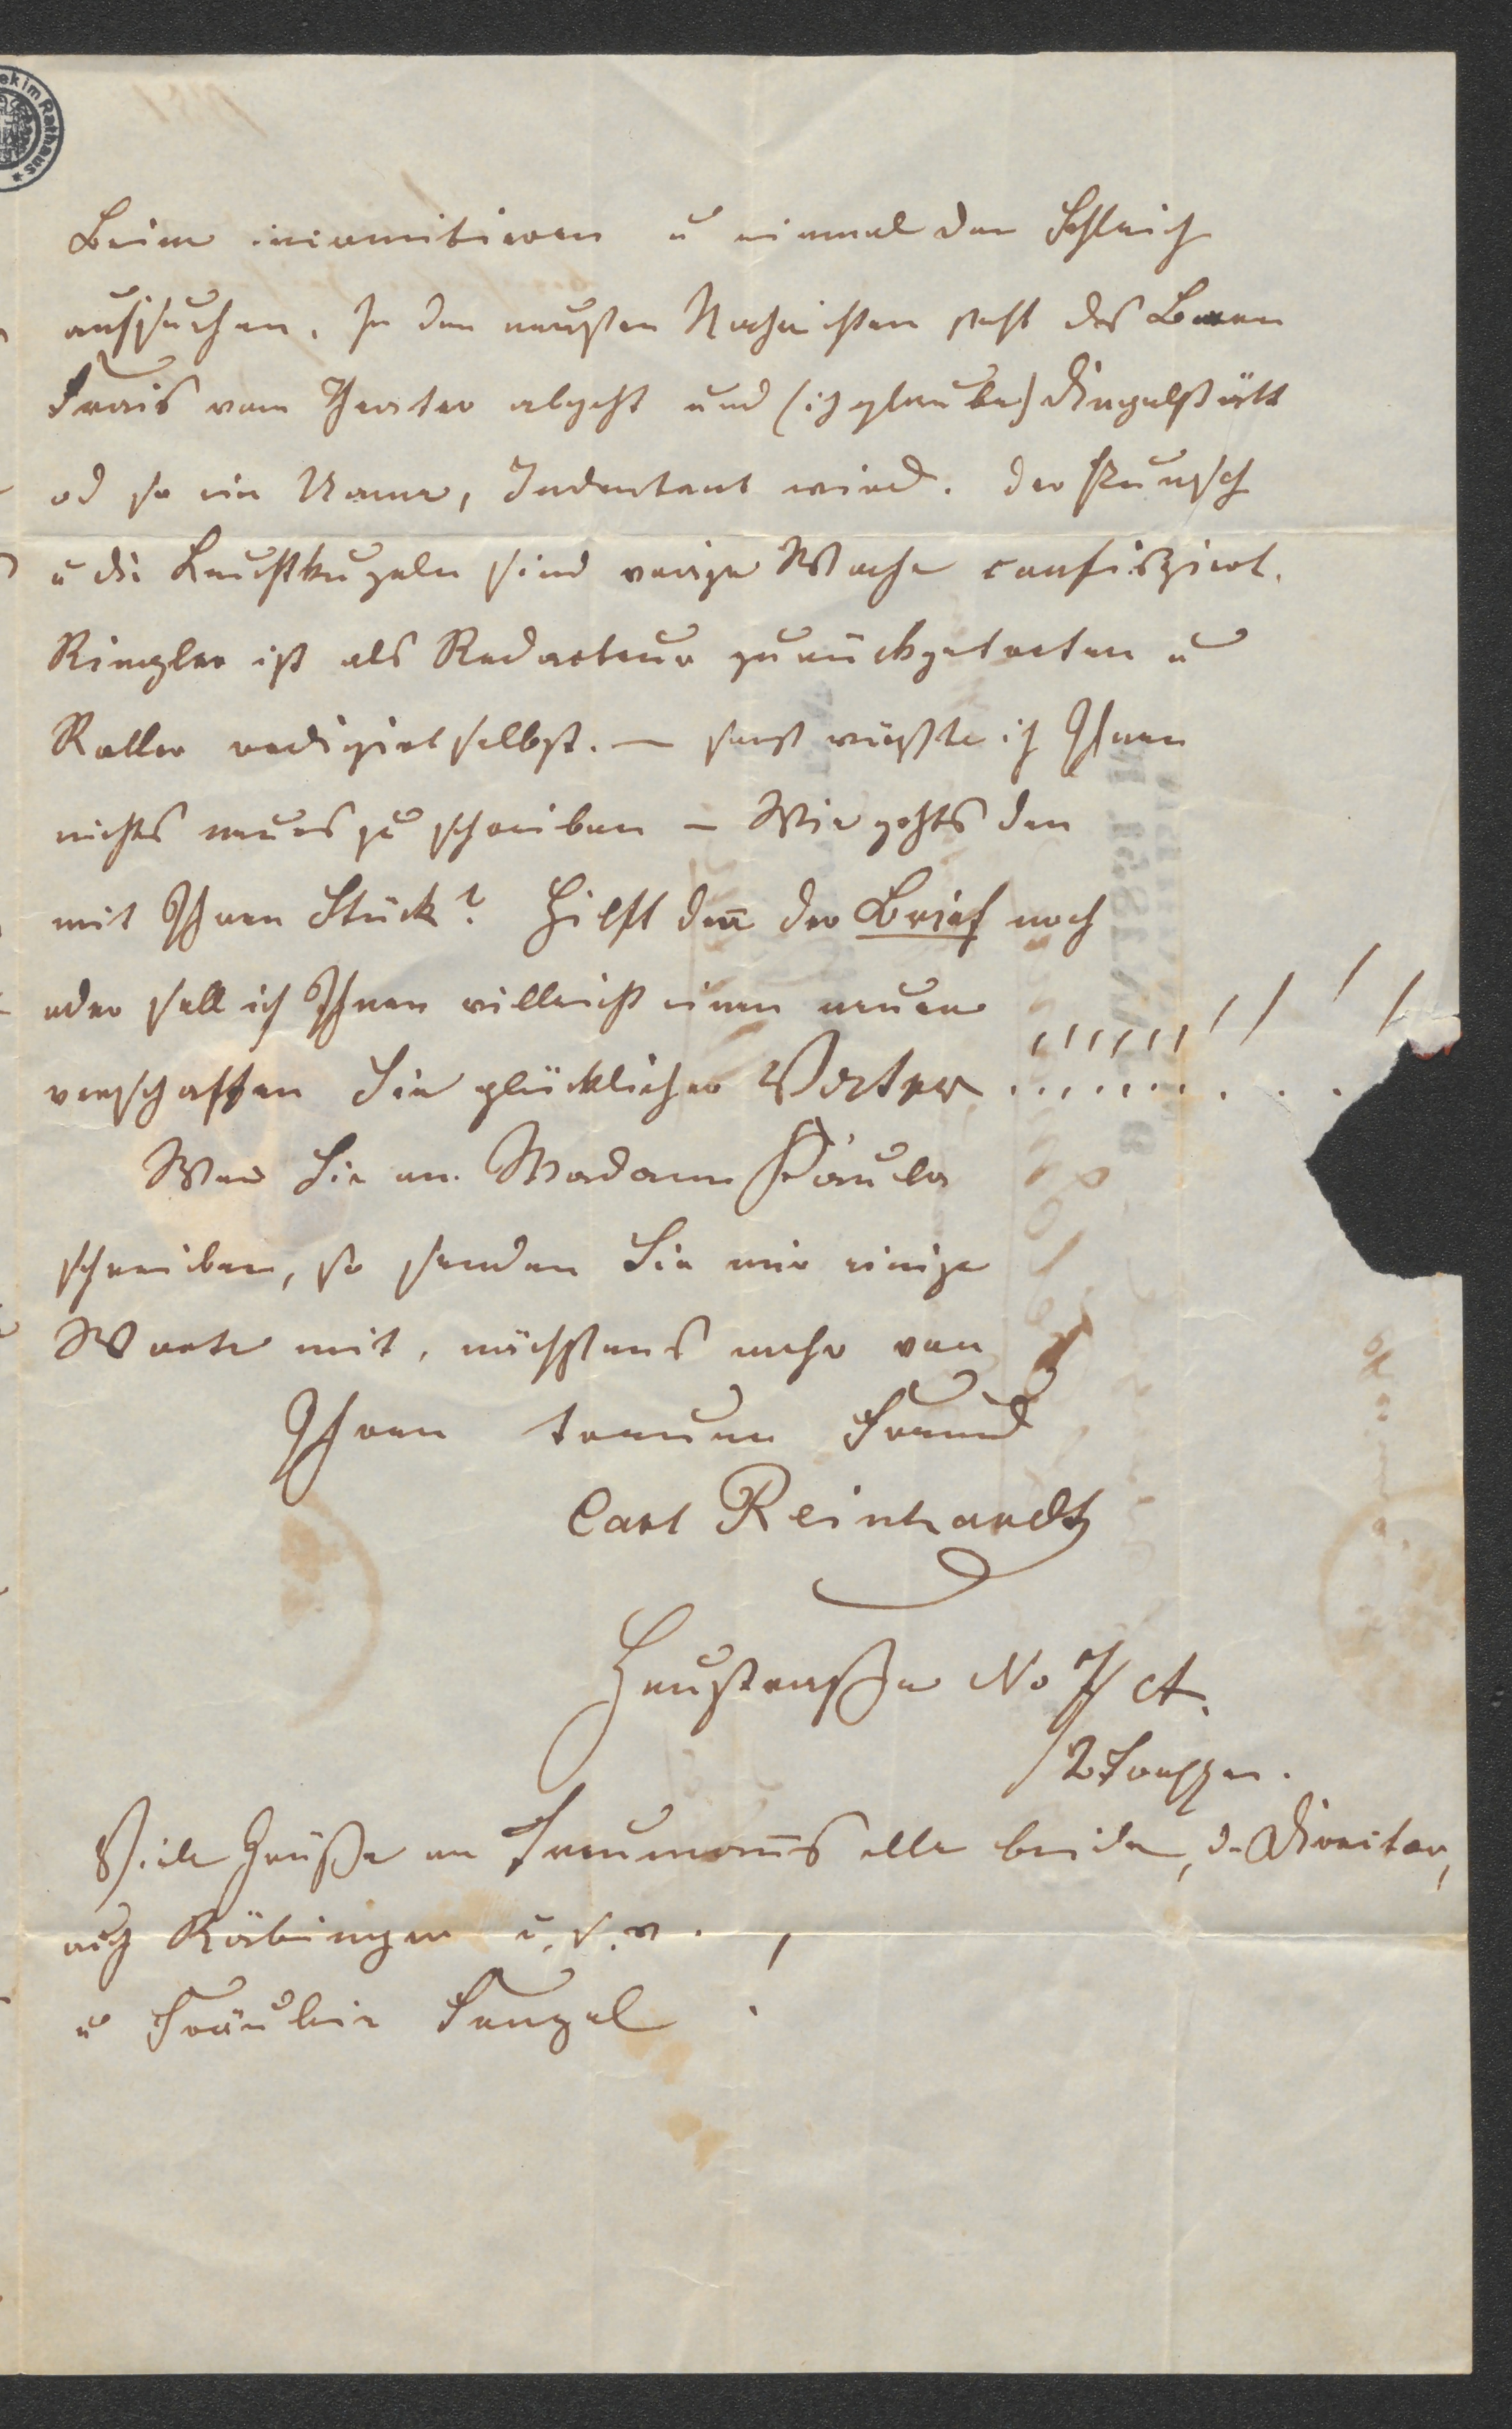 ek im Rathaus *
Beine u einmal den Schleich
aufsuchen. In den neusten Nachrichten steht das Baron
Frais vom Theater abgeht und (ich glaube) Dingelstätt
od so ein Name, Indentant wird. der Punsch
u die Leuchtkugeln sind vorige Woche confiszirt.
Ringler ist als Redacteur zurückgetreten u
Roller redigirt selbst. — sonst wüßte ich Ihnen
nichts neues zu schreiben – Wie gehts den
mit Ihren Stück? Hilft den̅ der Brief noch
oder soll ich Ihnen villeicht einen neuen
verschaffen Sie glücklicher Vater . . . . . . . . . !!!!!!!!!!
Wen Sie an Madam Päula
schreiben, so senden Sie mir einige
Worte mit, nächstens mehr von
Ihren treuen Freund
Carl Reinhardt
Heustrasse No 7 A.
2 Treppen.
Viele Grüße an alle beide, d. Director,
auch Räbingen u. s. w.
u Fräulein